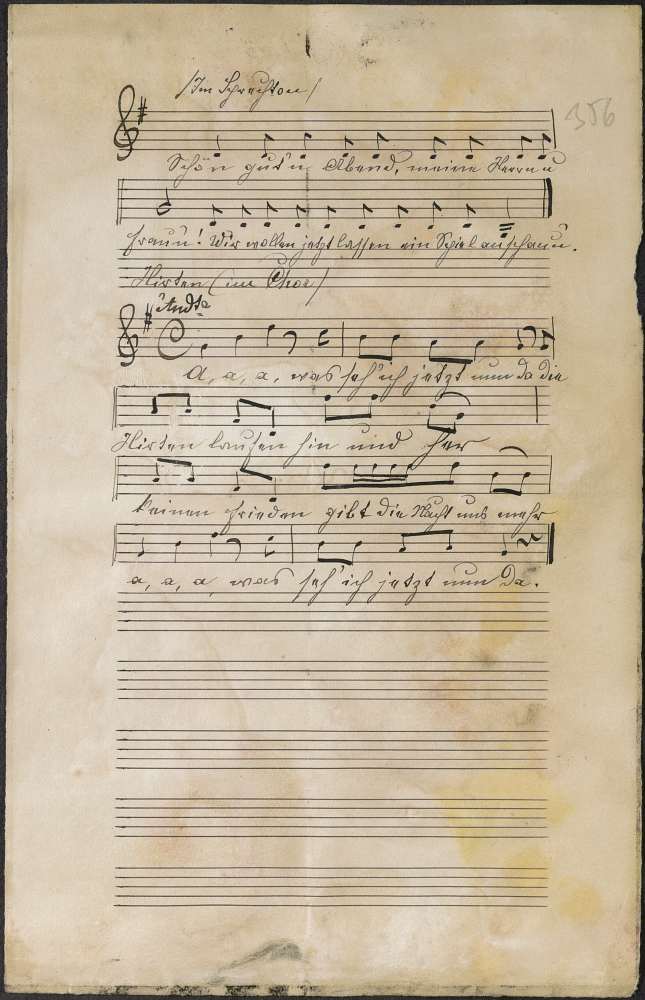 /Im Sprechton/
356
Schön gut'n Abend, meine Herrn u
Fraun! Wir wollen jetzt lassen ein Spiel anschaun.
Hirten (im Chor)
Andte
A, a, a, was seh' ich jetzt nun da die
Hirten laufen hin und her
keinen Frieden gibt die Nacht uns mehr
a, a, a was seh' ich jetzt nun da.